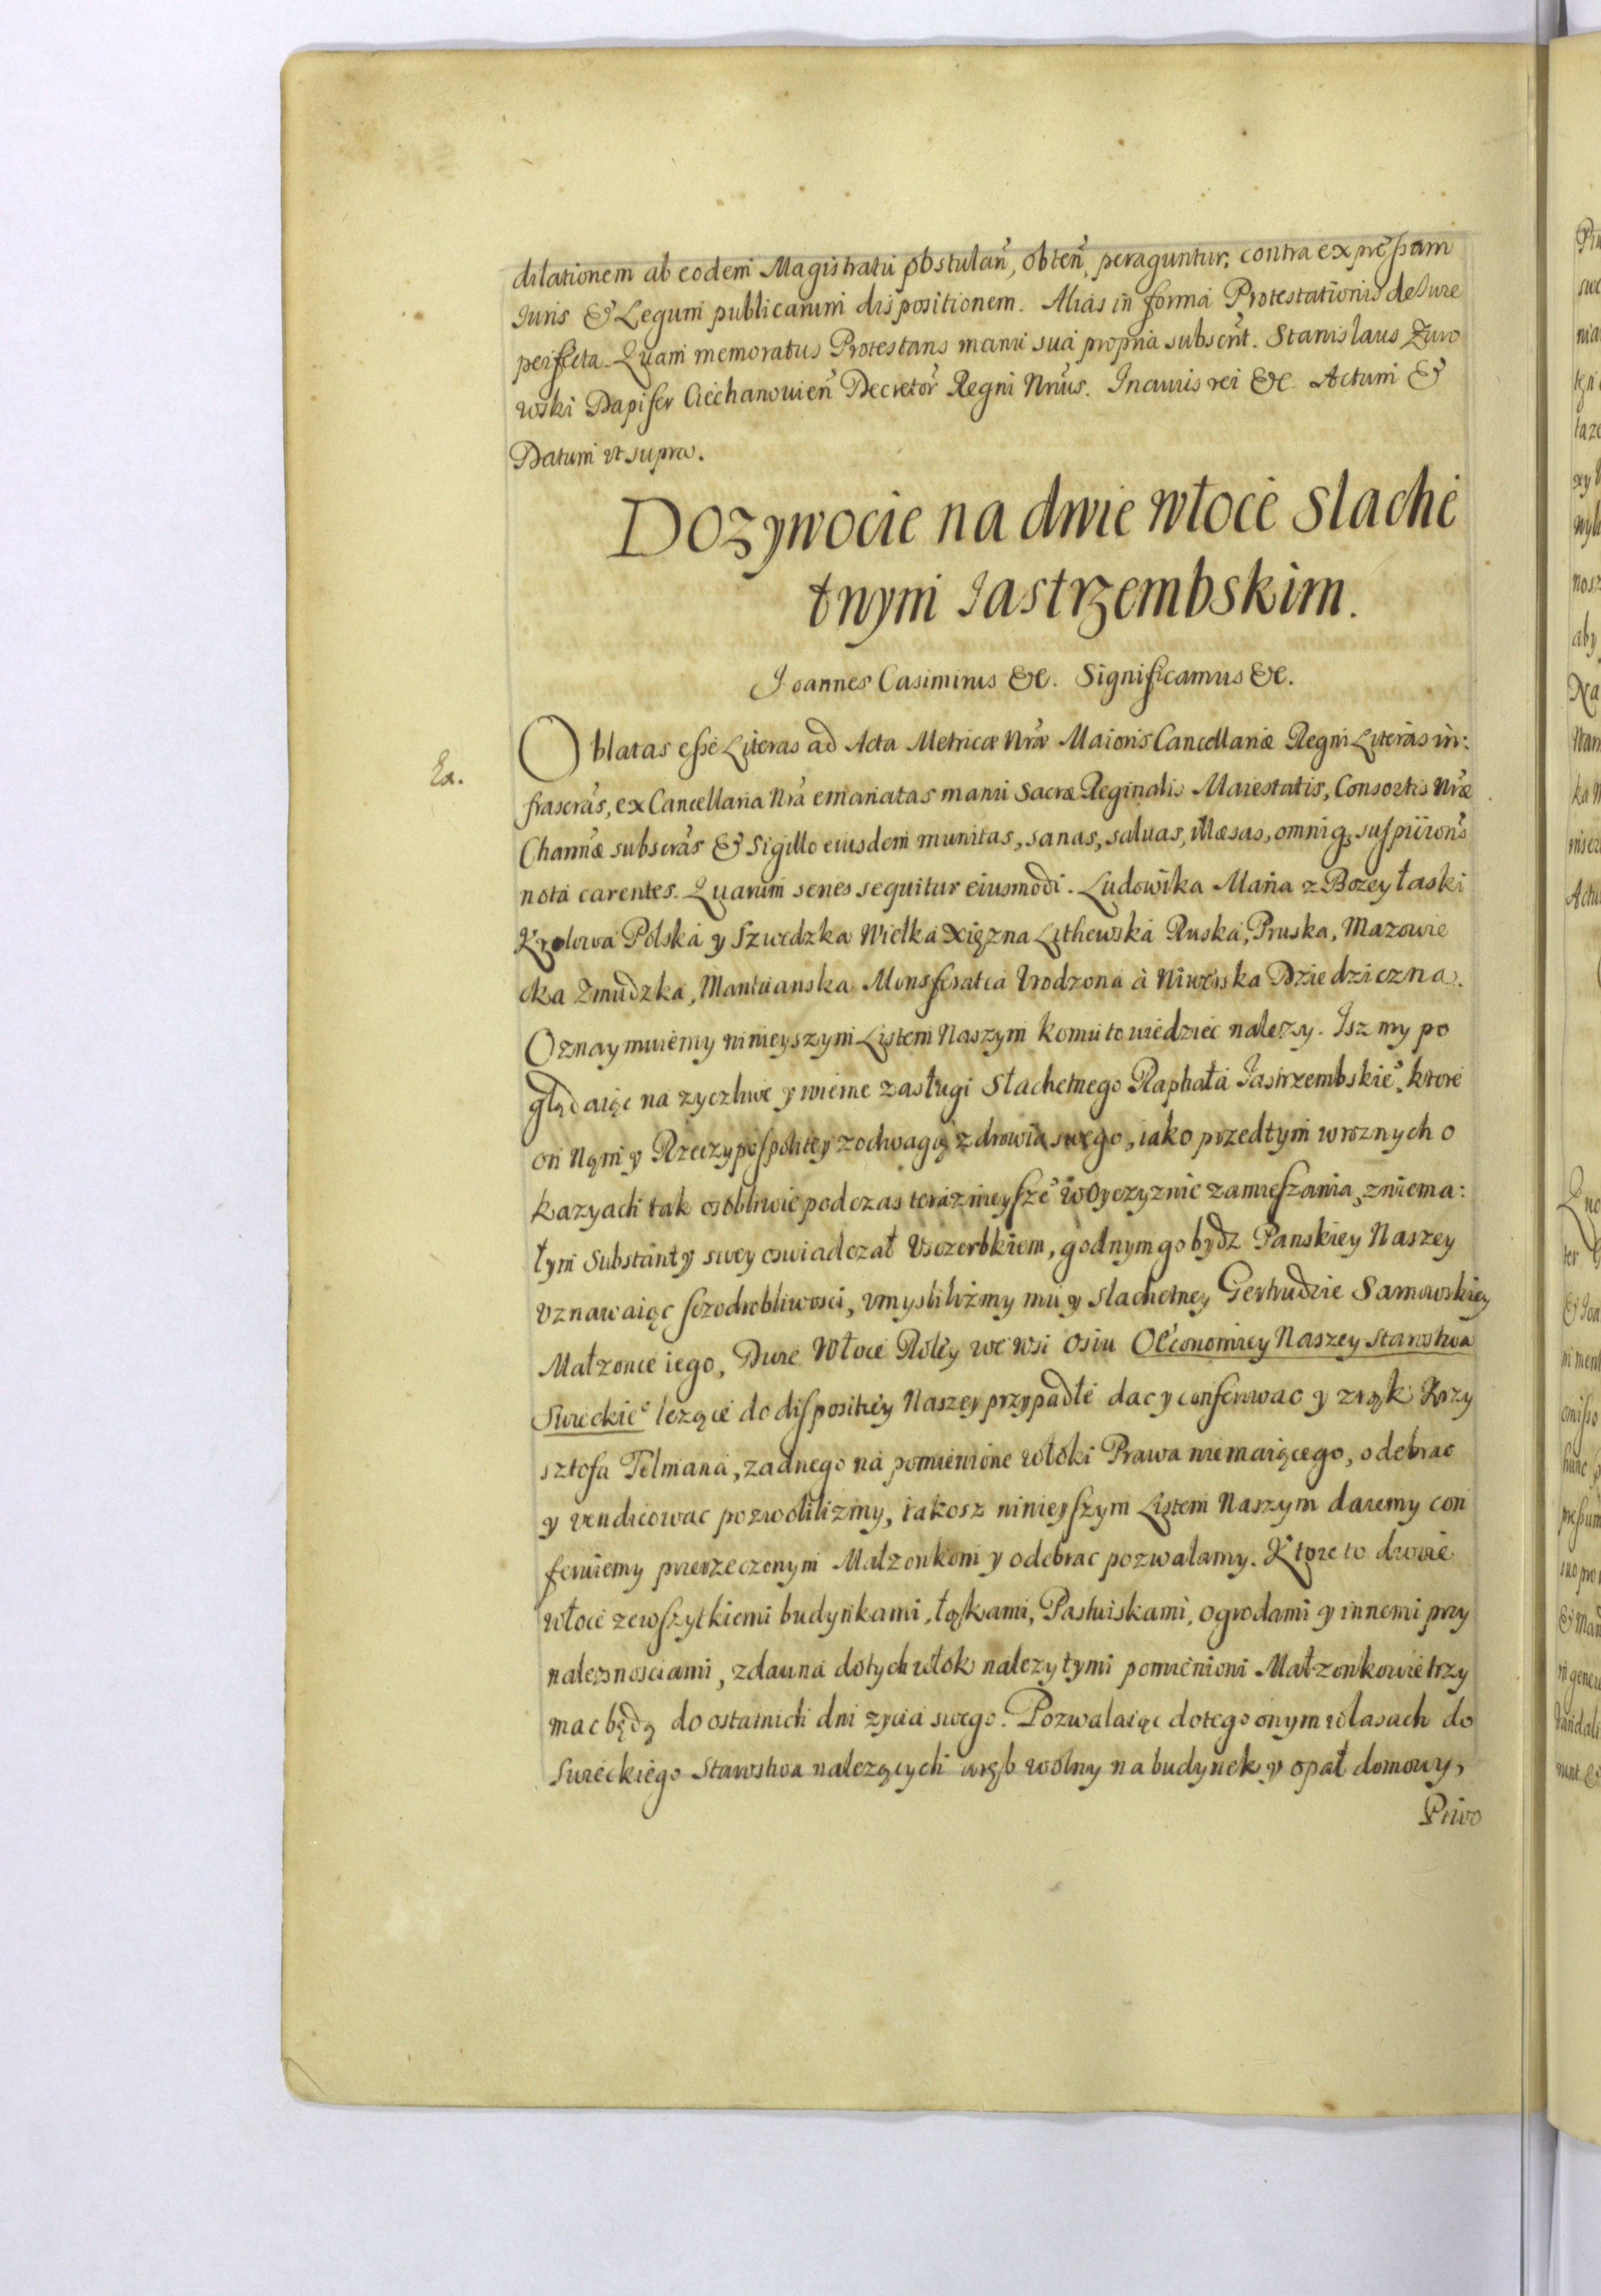 dilationem ab eodem Magistratu obstulan, obten, peraguntur, contra expressam
Iuris & Legum publicarum dispositionem. Alias in forma Protestationis de Iure
perfecta. Quam memoratus Protestans manu sua propria subscrit. Stanislaus Zuro
wski Dapifer Ciechanovien Decretor Regni Nrius. In cuius rei &c. Actum &
Datum vt supra.
Dozywocie na dwie włoce Slache
tnym Jastrzembskim.
Joannes Casimirus &c. Significamus &c.
Oblatas esse Literas ad Acta Metricæ Nræ Maioris Cancellariæ Regni Literas in:
Ea.
frascras, ex Cancellaria Nra emanatas manu Sacræ Reginalis Maiestatis, Consortis Nræ
Charmæ subscras & Sigillo eiusdem munitas, sanas, saluas, illæsas, omniq; suspiiionis
nota carentes. Quarum series sequitur eiusmodi. Ludowika Maria z Bozey łaski
Krolowa Polska y Szwedzka Wielka Xięzna Lithewska Ruska, Pruska, Mazowie
cka Zmudzka, Mantuanska Monsferatca Vrodzona a Niwerska Dziedziczna.
Oznaymuiemy ninieyszym Listem Naszym komu to wiedziec nalezy. Isz my po
glądaiąc na zyczliwe y wierne zasługi Slachetnego Raphała Jastrzembskie°. ktore
on Nąm y Rzeczypospolitey z odwagą zdrowia swego, iako przedtym w roznych o
kazyach tak osobliwie podczas teraznieysze° w Oyczyznie zamieszania, z niema:
łym Substantÿ swey oswiadczał Vsczerbkiem, godnym go bydz Panskiey Naszey
vznawaiąc sczodrobliwosci, vmyslilizmy mu y slachetney Gertrudzie Sarnowskiey
Małzonce iego, Dwie Włoce Roley we wsi Osiu Oeconomiey Naszey Starostwa
Swieckie° lezące do dispositiey Naszey przypadłe dac y conferowac y z rąk Krzy
sztofa Telmana, zadnego na pomienione włoki Prawa niemaiącego, odebrac
y vendicowac pozwolilizmy, iakosz ninieyszym Listem Naszym daiemy con
feruiemy przerzeczonym Małzonkom y odebrac pozwalamy. Ktore to dwie
włoce ze wszytkiemi budynkami, łąkami, Pastwiskami, ogrodami y innemi przy
naleznosciami, zdauna do tych włok nalezytymi pomienioni Małzonkowie trzy
mac będą do ostatnich dni zycia swego. Pozwalaiąc do tego onym w lasach do
Swieckiego Starostwa nalezących wrąb wolny na budynek y opał domowy,
Piwo